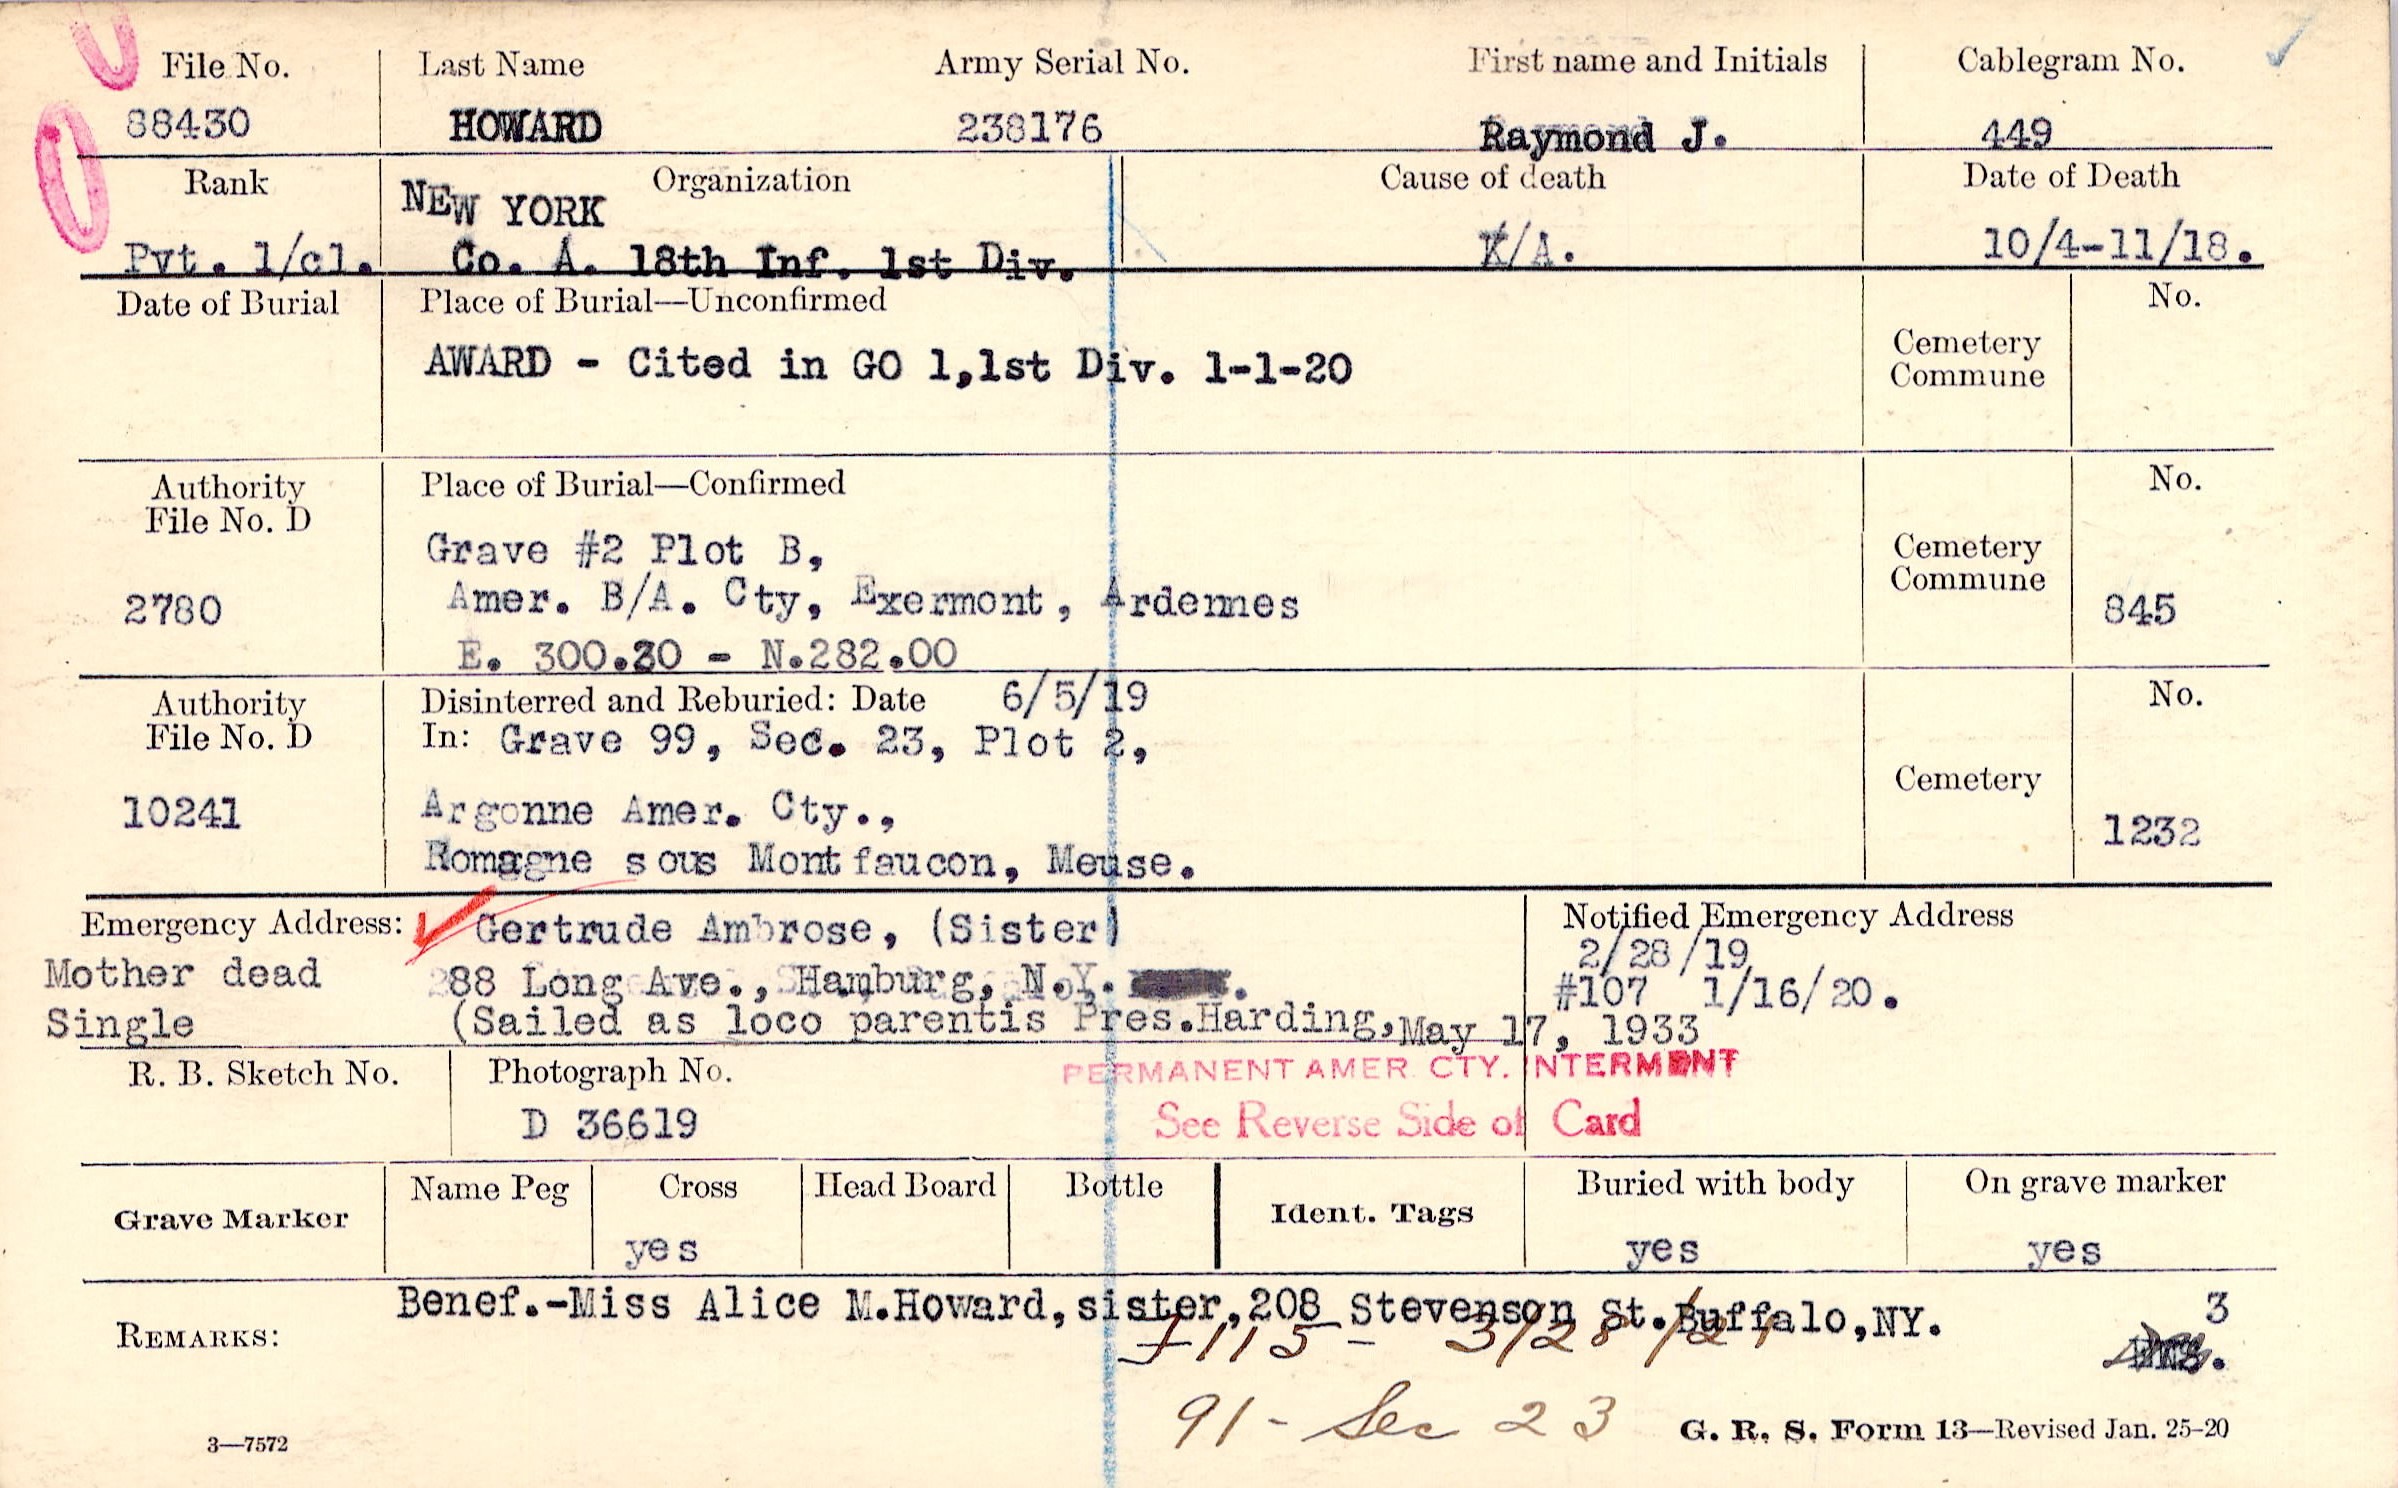 File No. Last Name Army Serial No. First name and Initials Cablegram No.
88430 HOWARD 238176 Raymond J. 449
Rank Organization Cause of death Date of Death
NEW YORK
Pvt. 1/cl. Co. A. 18th Inf. 1st Div. K/A. 10/4-11/18.
Date of Burial Place of Burial—Unconfirmed No.
Cemetery
Commune
AWARD - Cited in GO 1,1st Div. 1-1-20
Authority
File No. D
Place of Burial—Confirmed No.
Grave #2 Plot B,
Cemetery
Commune
2780 Amer. B/A. Cty, Exermont, Ardennes 845
E. 300.30 - N.282.00
Authority
File No. D
Disinterred and Reburied: Date 6/5/19 No.
In: Grave 99, Sec. 23, Plot 2,
Cemetery
10241 Argonne Amer. Cty., 1232
Romagne sous Montfaucon, Meuse.
Emergency Address: Gertrude Ambrose, (Sister) Notified Emergency Address
2/28/19
Mother dead 88 Long Ave., Hamburg, N.Y. #107 1/16/20.
Single (Sailed as loco parentis Pres.Harding, May 17, 1933
R. B. Sketch No. Photograph No. PERMANENT AMER. CTY. INTERMENT
D 36619 See Reverse Side of Card
Grave Marker Name Peg Cross Head Board Bottle Ident. Tags Buried with body On grave marker
yes yes yes
REMARKS: Benef.-Miss Alice M.Howard,sister,208 Stevenson St.Buffalo,NY. 3
115 - 3/28/21
91 - Sec 23
3—7572 G. R. S. Form 13—Revised Jan. 25-20